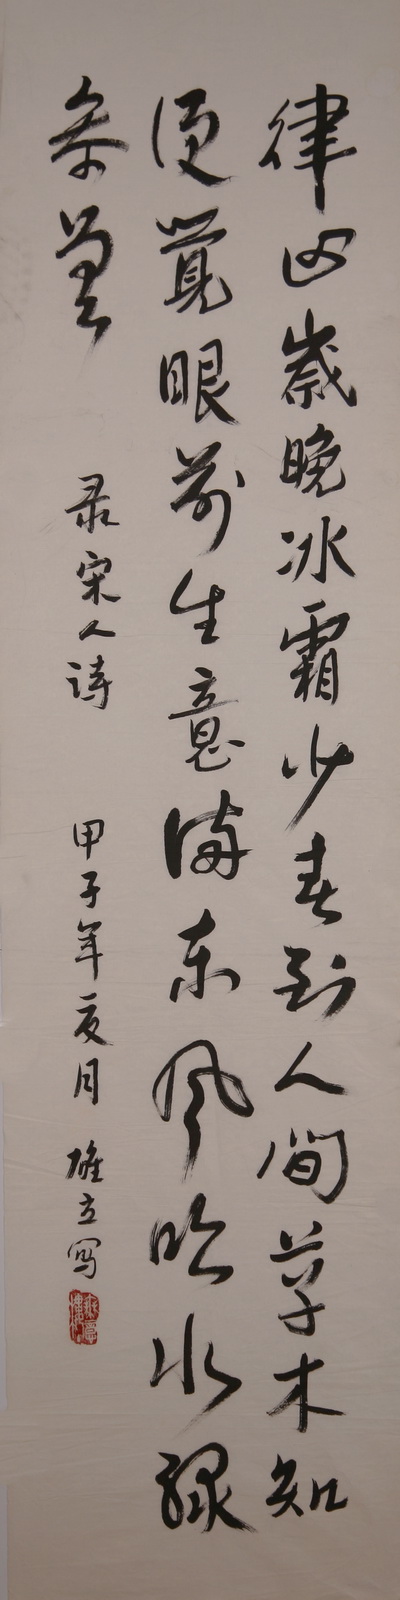 律回歳晚冰霜少春到人间草木知
便覺眼前生意满东风吹水绿
参差 录宋人诗 甲子年亥月 雄立写